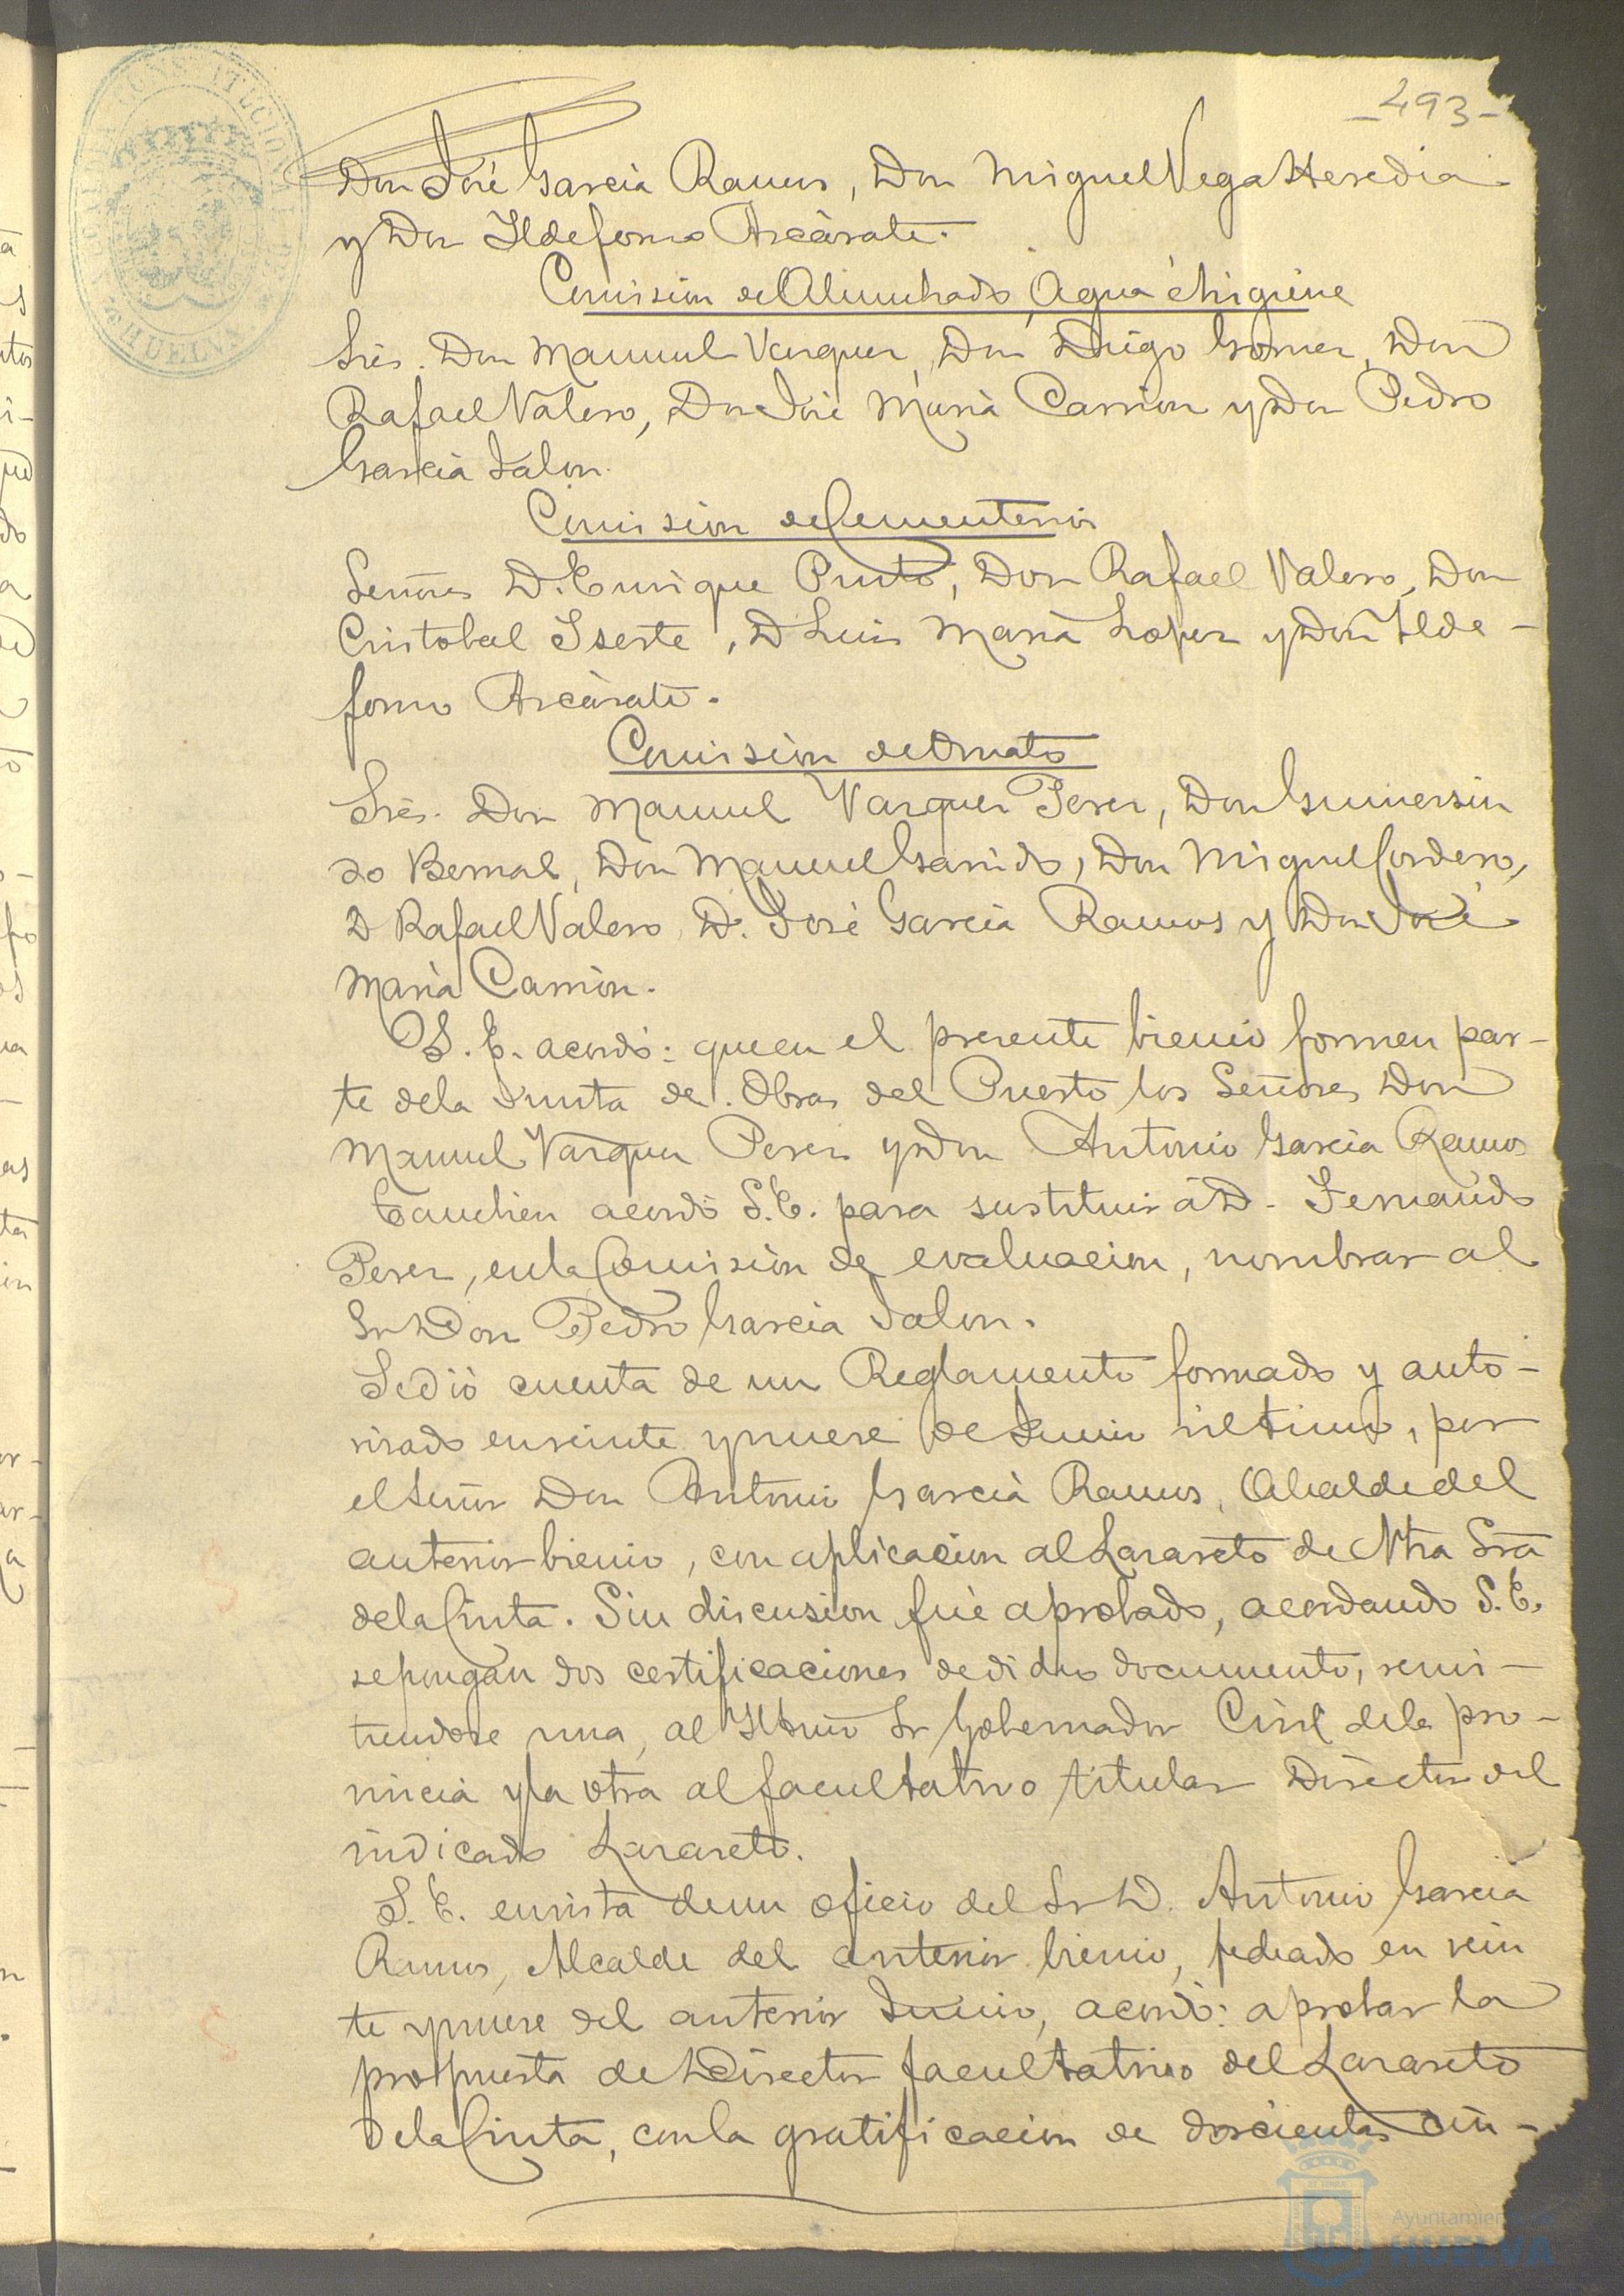 -493-
Don José Garcia Ramos, Don Miguel Vega Heredia
y Don Ildefonso Ascàrate.
Comision de Alumbrado, Agua é higiene
Sres. Don Manuel Vazquez, Don Diego Gomez, Don
Rafael Valero, Don José Maria Carrion y Don Pedro
Garcia Jalon.
Comision de Cementerios
Señores D. Enrique Pinto, Don Rafael Valero, Don
Cristobal Iserte, D Luis Maria Lopez y Don Ilde-
fonso Ascàrate.
Comision de Ornato
Sres. Don Manuel Vazquez Perez, Don Gumersin
do Bernal, Don Manuel Garrido, Don Miguel Cordero,
D Rafael Valero, D. José Garcia Ramos y Don José
Maria Carrion.
S. E. acordó: que en el presente bienio formen par-
te dela Junta de Obras del Puerto los Señores Don
Manuel Vazquez Perez y Don Antonio Garcia Ramos
Tambien acordó S. E. para sustituir á D. Fernando
Perez, en la Comision de evaluacion, nombrar al
Sr Don Pedro Garcia Jalon.
Se dió cuenta de un Reglamento formado y auto-
rizado en veinte y nueve de Junio ultimo, por
el Señor Don Antonio Garcia Ramos, Alcalde del
anterior bienio, con aplicacion al Lazareto de Ntra Sra
de la Cinta. Sin discusion fué aprobado, acordando S. E.
se pongan dos certificaciones de dicho documento, remi-
tiendose una, al Iltmo Sr Gobernador Civil dela pro-
vincia y la otra al facultativo titular Director del
indicado Lazareto.
S. E. en vista de un oficio del Sr D. Antonio Garcia
Ramos, Alcalde del anterior bienio, fechado en vein
te y nueve del anterior Junio, acordó: aprobar la
propuesta de Director facultativo del Lazareto
de la Cinta, con la gratificacion de doscientas cin-
HUELVA
Ayuntamiento de
HUELVA